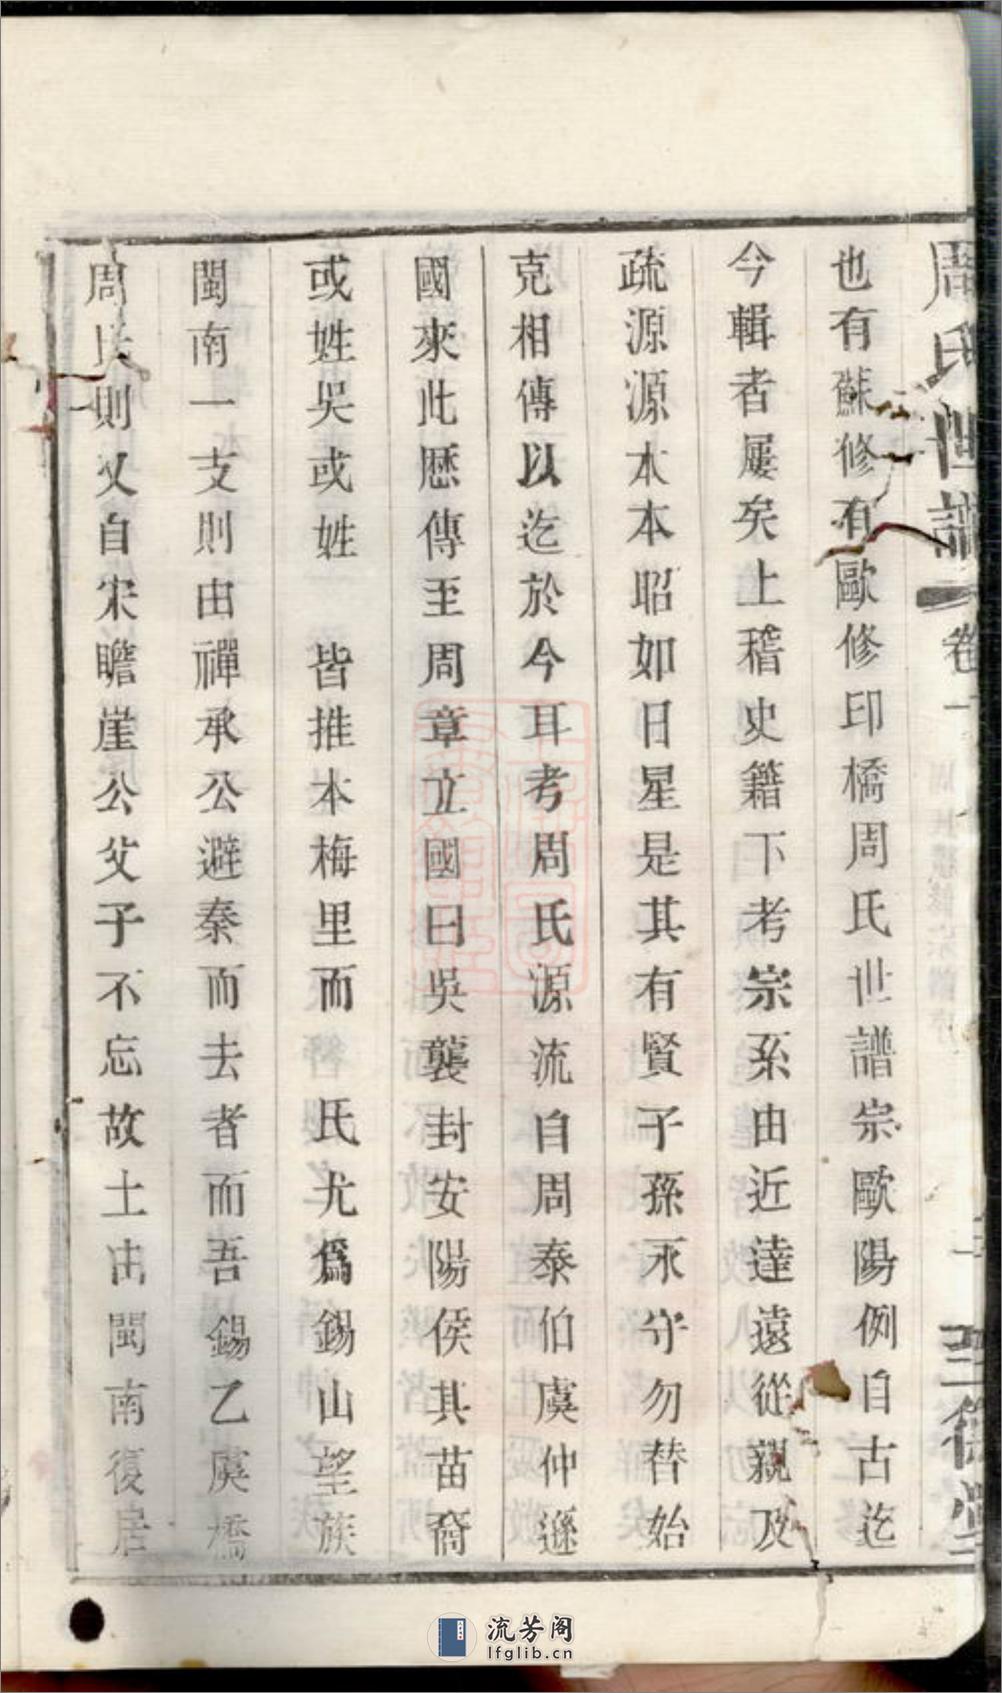 周氏世譜
卷一
三
也有蘇修有歐修印橋周氏世譜宗歐陽例自古迄
今輯者屢矣上稽史籍下考宗系由近達遠從親及
疏源源本本昭如日星是其有賢子孫永守勿替始
克相傳以迄於今耳考周氏源流自周泰伯虞仲遜
國來此歷傳至周章立國曰吳襲封安陽侯其苗裔
或姓吳或姓 皆推本梅里而 氏尤為錫山望族
閩南一支則由禪承公避秦而去者而吾錫乙虞橋
周氏則又自宋瞻崖公父子不忘故土由閩南復居
流芳阁
lfglib.cn